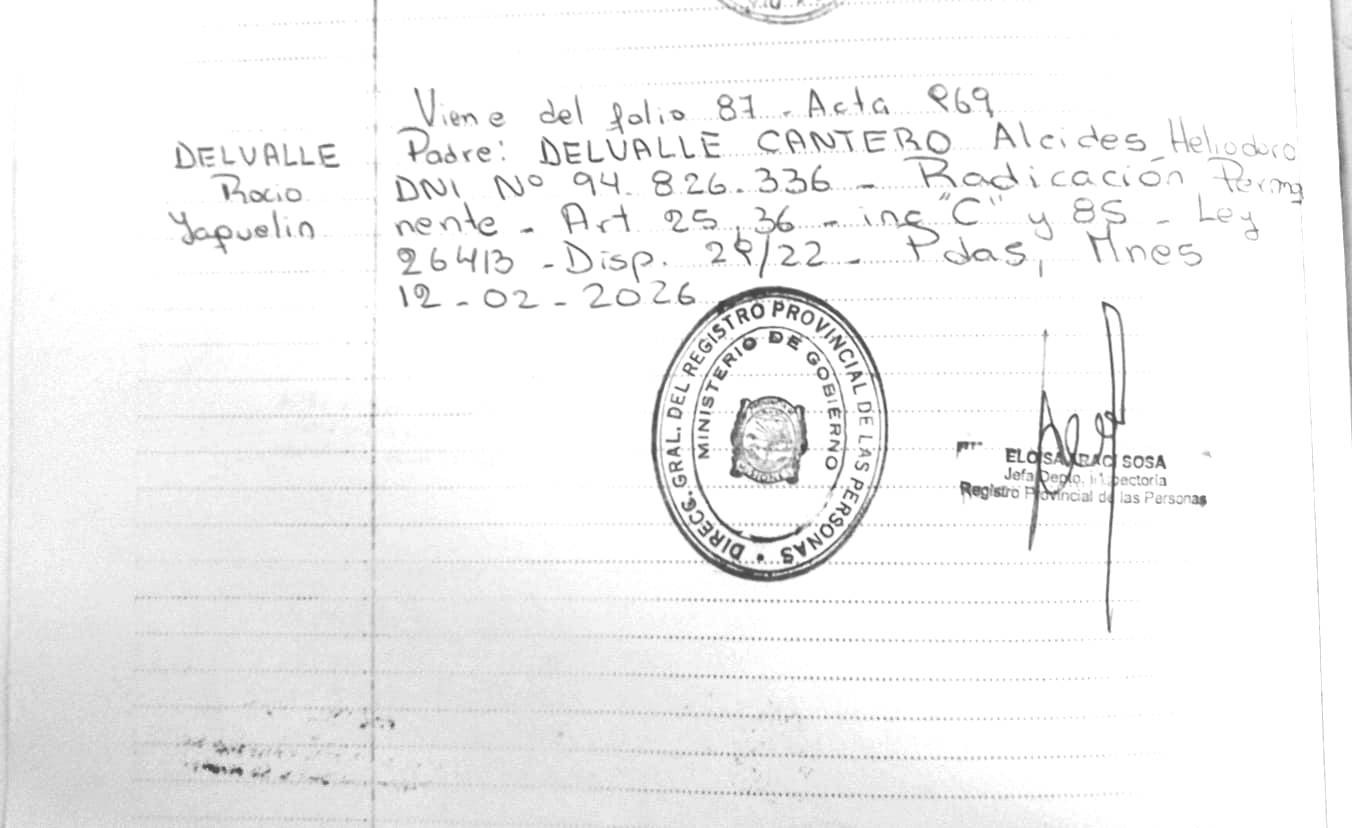 Viene del folio 87 - Acta 869
DELVALLE
Rocio
Yaquelin
Padre: DELVALLE CANTERO Alcides Heliodoro
DNI Nº 94.826.336 - Radicación Perma
nente - Art 25, 36 - inc "C" y 85 - Ley
26413 - Disp. 28/22 - Pdas, Mnes
12-02-2026
DIRECC. GRAL. DEL REGISTRO PROVINCIAL DE LAS PERSONAS
MINISTERIO DE GOBIERNO
SOSA
Jefa Depto.
Registro Provincial de las Personas